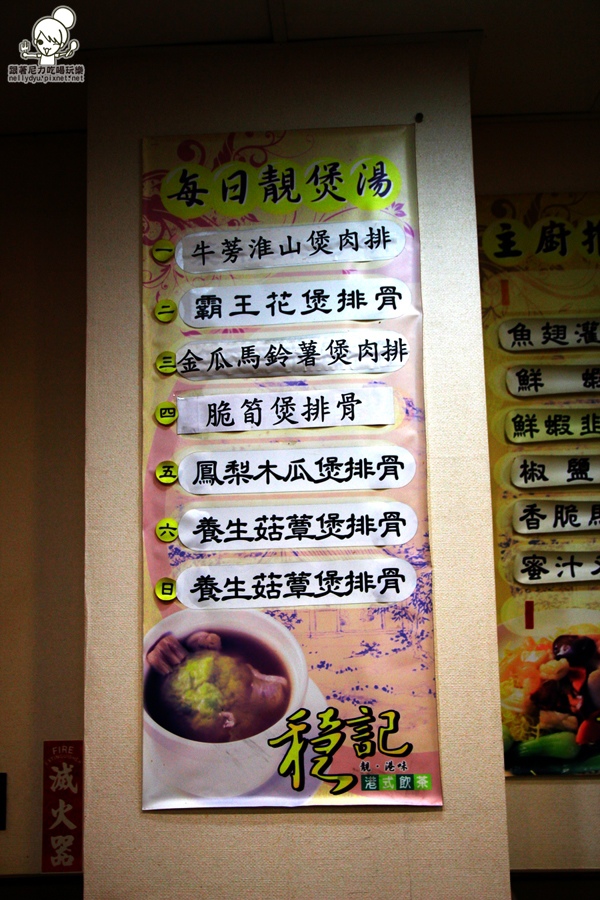 跟著尼力吃喝玩樂
nellydyu.pixnet.net
每日靚煲湯
一 牛蒡淮山煲肉排
二 霸王花煲排骨
三 金瓜馬鈴薯煲肉排
四 脆筍煲排骨
五 鳳梨木瓜煲排骨
六 養生菇蕈煲排骨
日 養生菇蕈煲排骨
穩記
靚·港味
港式飲茶
主廚推
魚翅灌
鮮蝦
鮮蝦韭
椒鹽
香脆
蜜汁
FIRE
滅火器